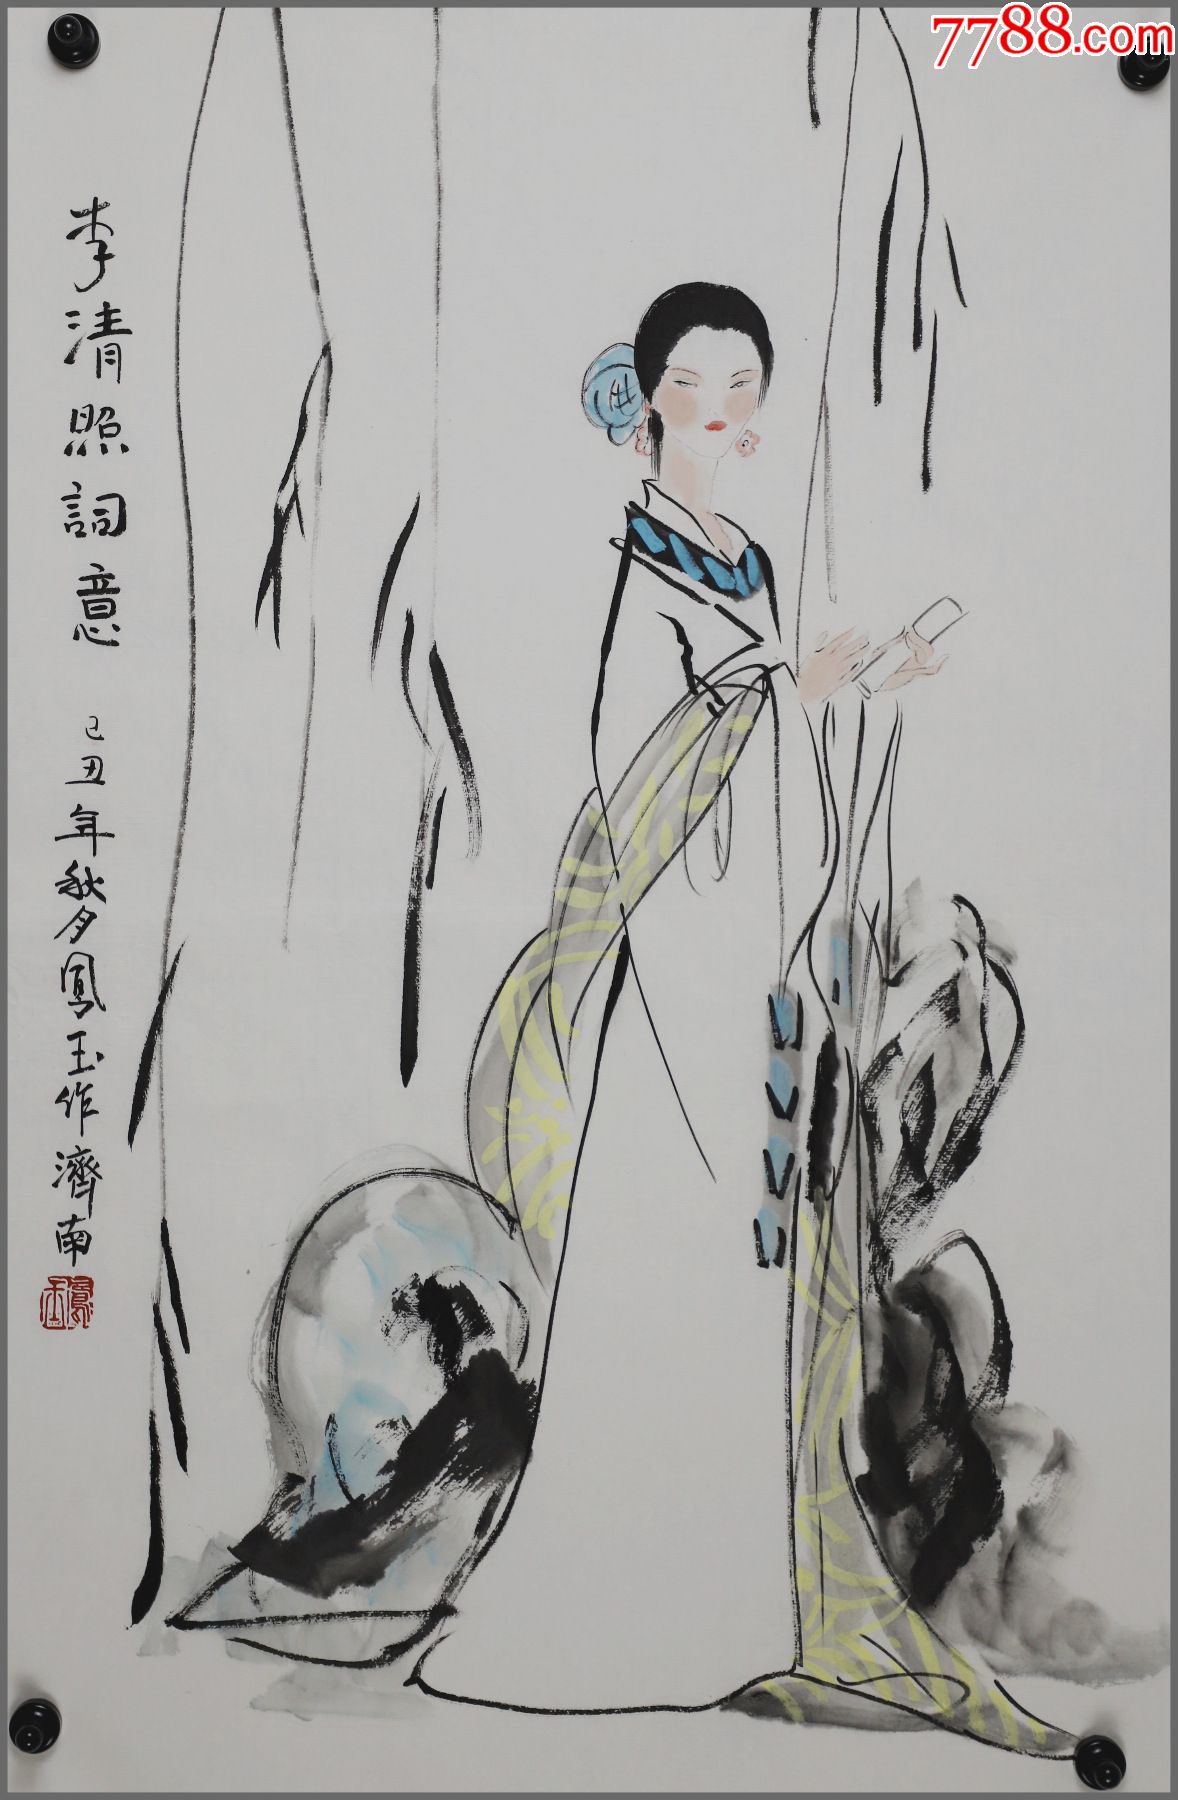 7788.com
李清照詞意
己丑年秋夕鳳玉作濟南
鳳玉